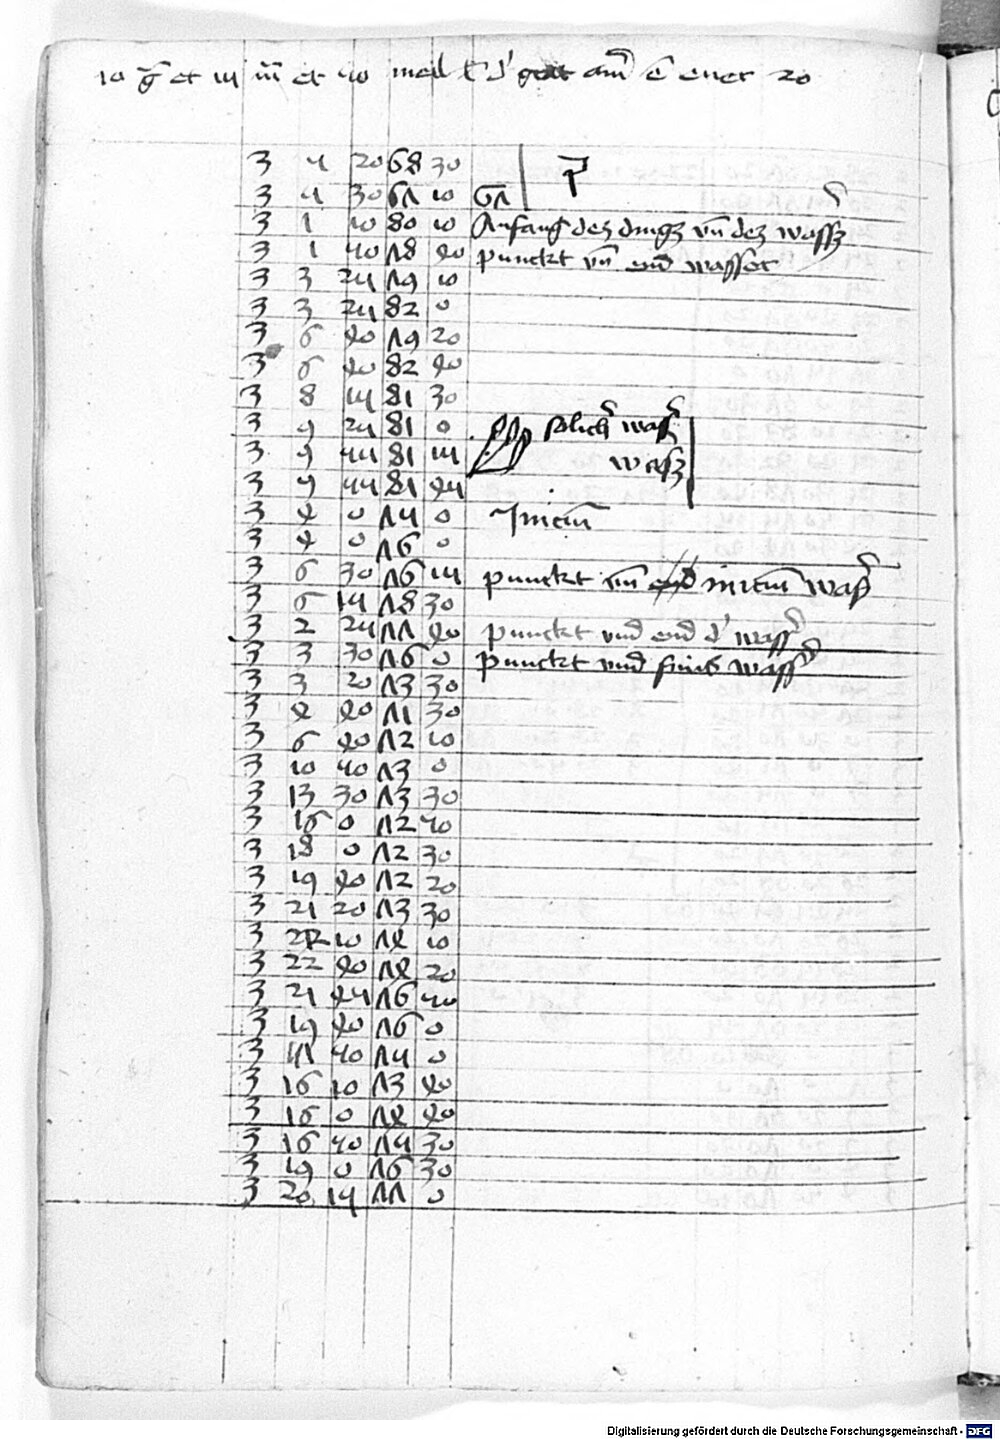 10 g et 15 m et 50
3 5 20 68 30
3 5 30 67 10 67
3 1 10 80 10 Anfang dez dingz vn dez wassz
3 1 50 78 40 punckt vn end wasser
3 3 25 79 10
3 3 25 82 0
3 6 40 79 20
3 6 40 82 40
3 8 15 81 30
3 9 25 81 0 solich wass
3 9 55 81 15 wassz
3 9 55 81 45
3 4 0 75 0 Initium
3 4 0 76 0
3 6 30 76 15 punckt vn end initium wass
3 6 15 78 30
3 2 25 77 40 punckt vnd end d' wass
3 3 30 76 0 punckt vnd finis wass
3 3 20 73 30
3 4 40 71 30
3 6 40 72 10
3 10 50 73 0
3 13 30 73 30
3 16 0 72 50
3 18 0 72 30
3 19 40 72 20
3 21 20 73 30
3 22 10 74 10
3 22 40 74 20
3 21 45 76 50
3 19 40 76 0
3 17 50 75 0
3 16 10 73 40
3 16 0 74 40
3 16 50 75 30
3 19 0 76 30
3 20 15 77 0
Digitalisierung gefördert durch die Deutsche Forschungsgemeinschaft - DFG